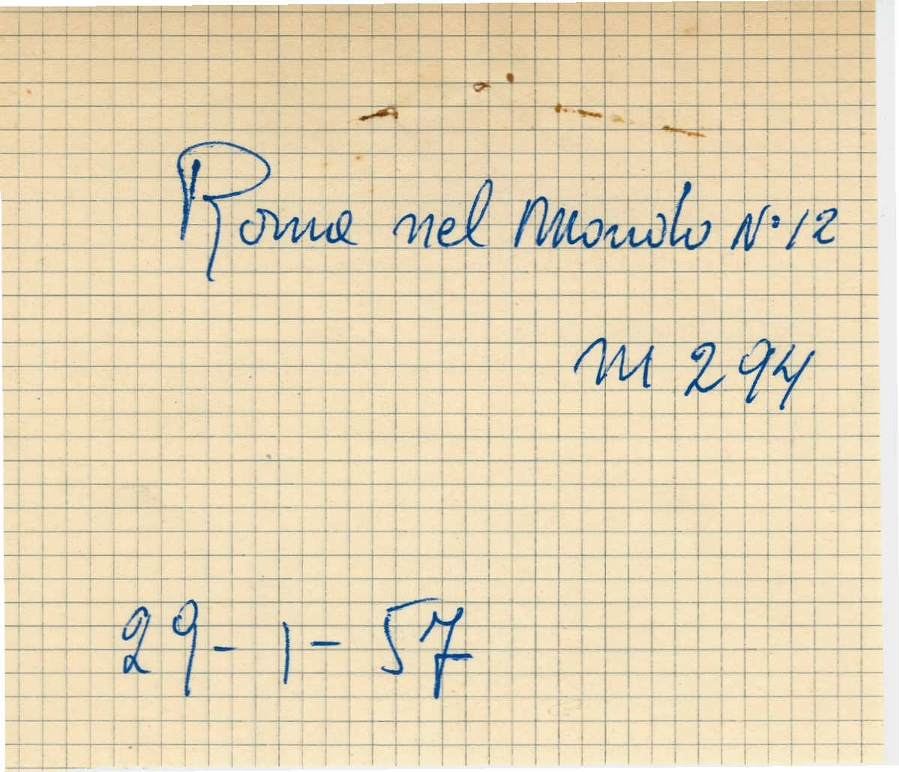 Roma nel Mondo N° 12
m 294
29-1-57